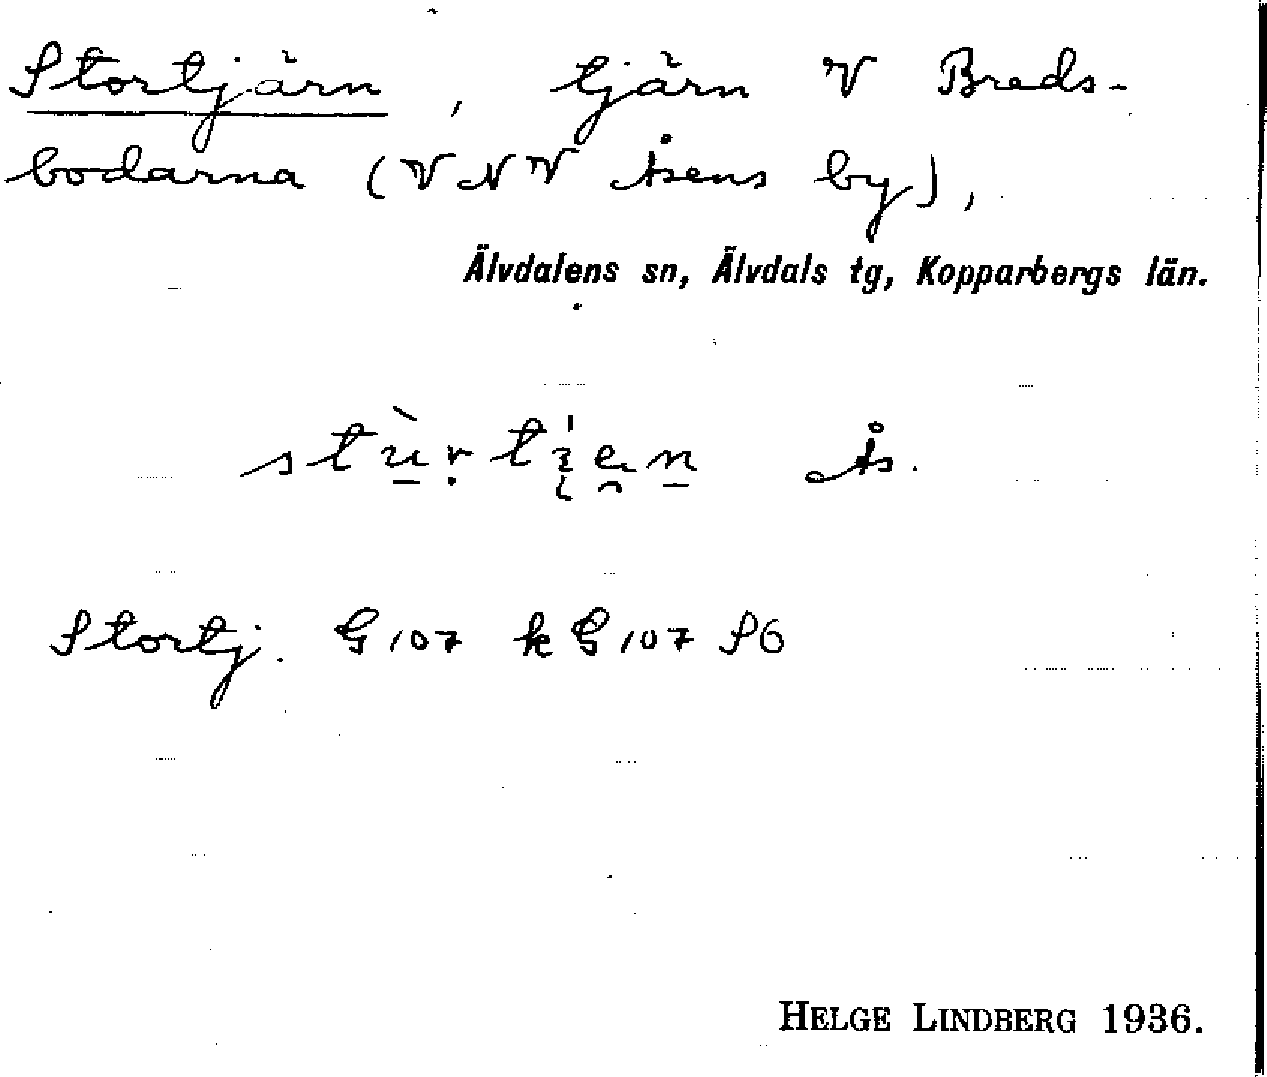 Stortjärn, tjärn V Breds-
bodarna (VNV Åsens by),
Älvdalens sn, Älvdals tg, Kopparbergs län.
Ås.
Stortj. G107 k G107 S6
HELGE LINDBERG 1936.